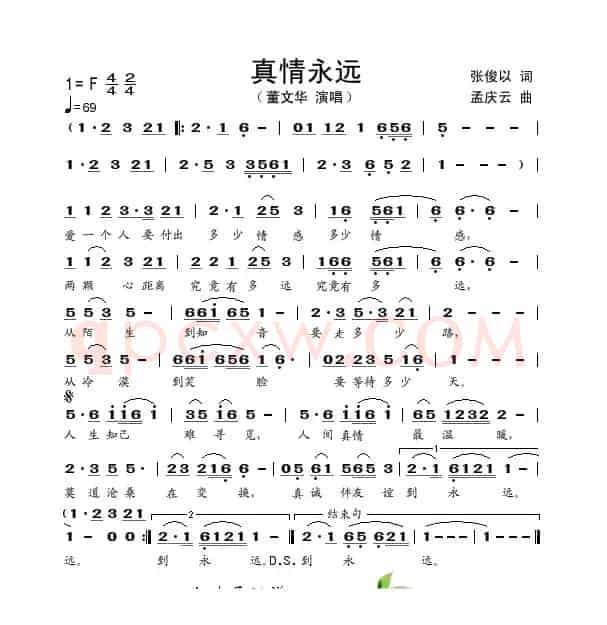 真情永远
1=F 4/4 2/4
♩=69
（董文华 演唱）
张俊以 词
孟庆云 曲
(1·2 3 21 |: 2·1 6 - | 01 12 1 656 | 5 - - - |
1·2 3 21 | 2·5 3 3561 | 2·3 6 52 | 1 - - - ) |
1 1 23·3 21 | 2·1 25 3 | 16 561 | 6 6·6 | 2 - |
爱一个人要付出 多少情感多少情 感,
1 12 3·321 | 221 25 3 | 166 561 | 6 6·6 | 2 - |
两颗 心距离 究竟有多远究竟有多 远,
5 53 5 - | 661 65 5 | 3·2 3·5 321 | 2 - - - |
从陌生 到知音 要走多少路,
5 53 5 - | 661 656 1 6 | 02 23 5 16 | 1 - - - |
从冷漠 到笑脸 要等待多少天。
5·6 1161 | 35 35 2 - | 5·6 1161 | 65 1232 - |
人生知己 难寻觅, 人间真情 最温暖,
3·2 35 5 | 23 2216 - | 05 61 565 3 | 2·1 6121 | 1 - - - |
莫道沧桑 在变换, 真诚伴友谊到永 远。
(1·2 3 21
1 - 00 :| 2·1 6121 | 1 - - - :| 2·1 65 621 | 1 - - - ||
结束句
远。 到永 远。D.S.到永 远。
qpcxw.com